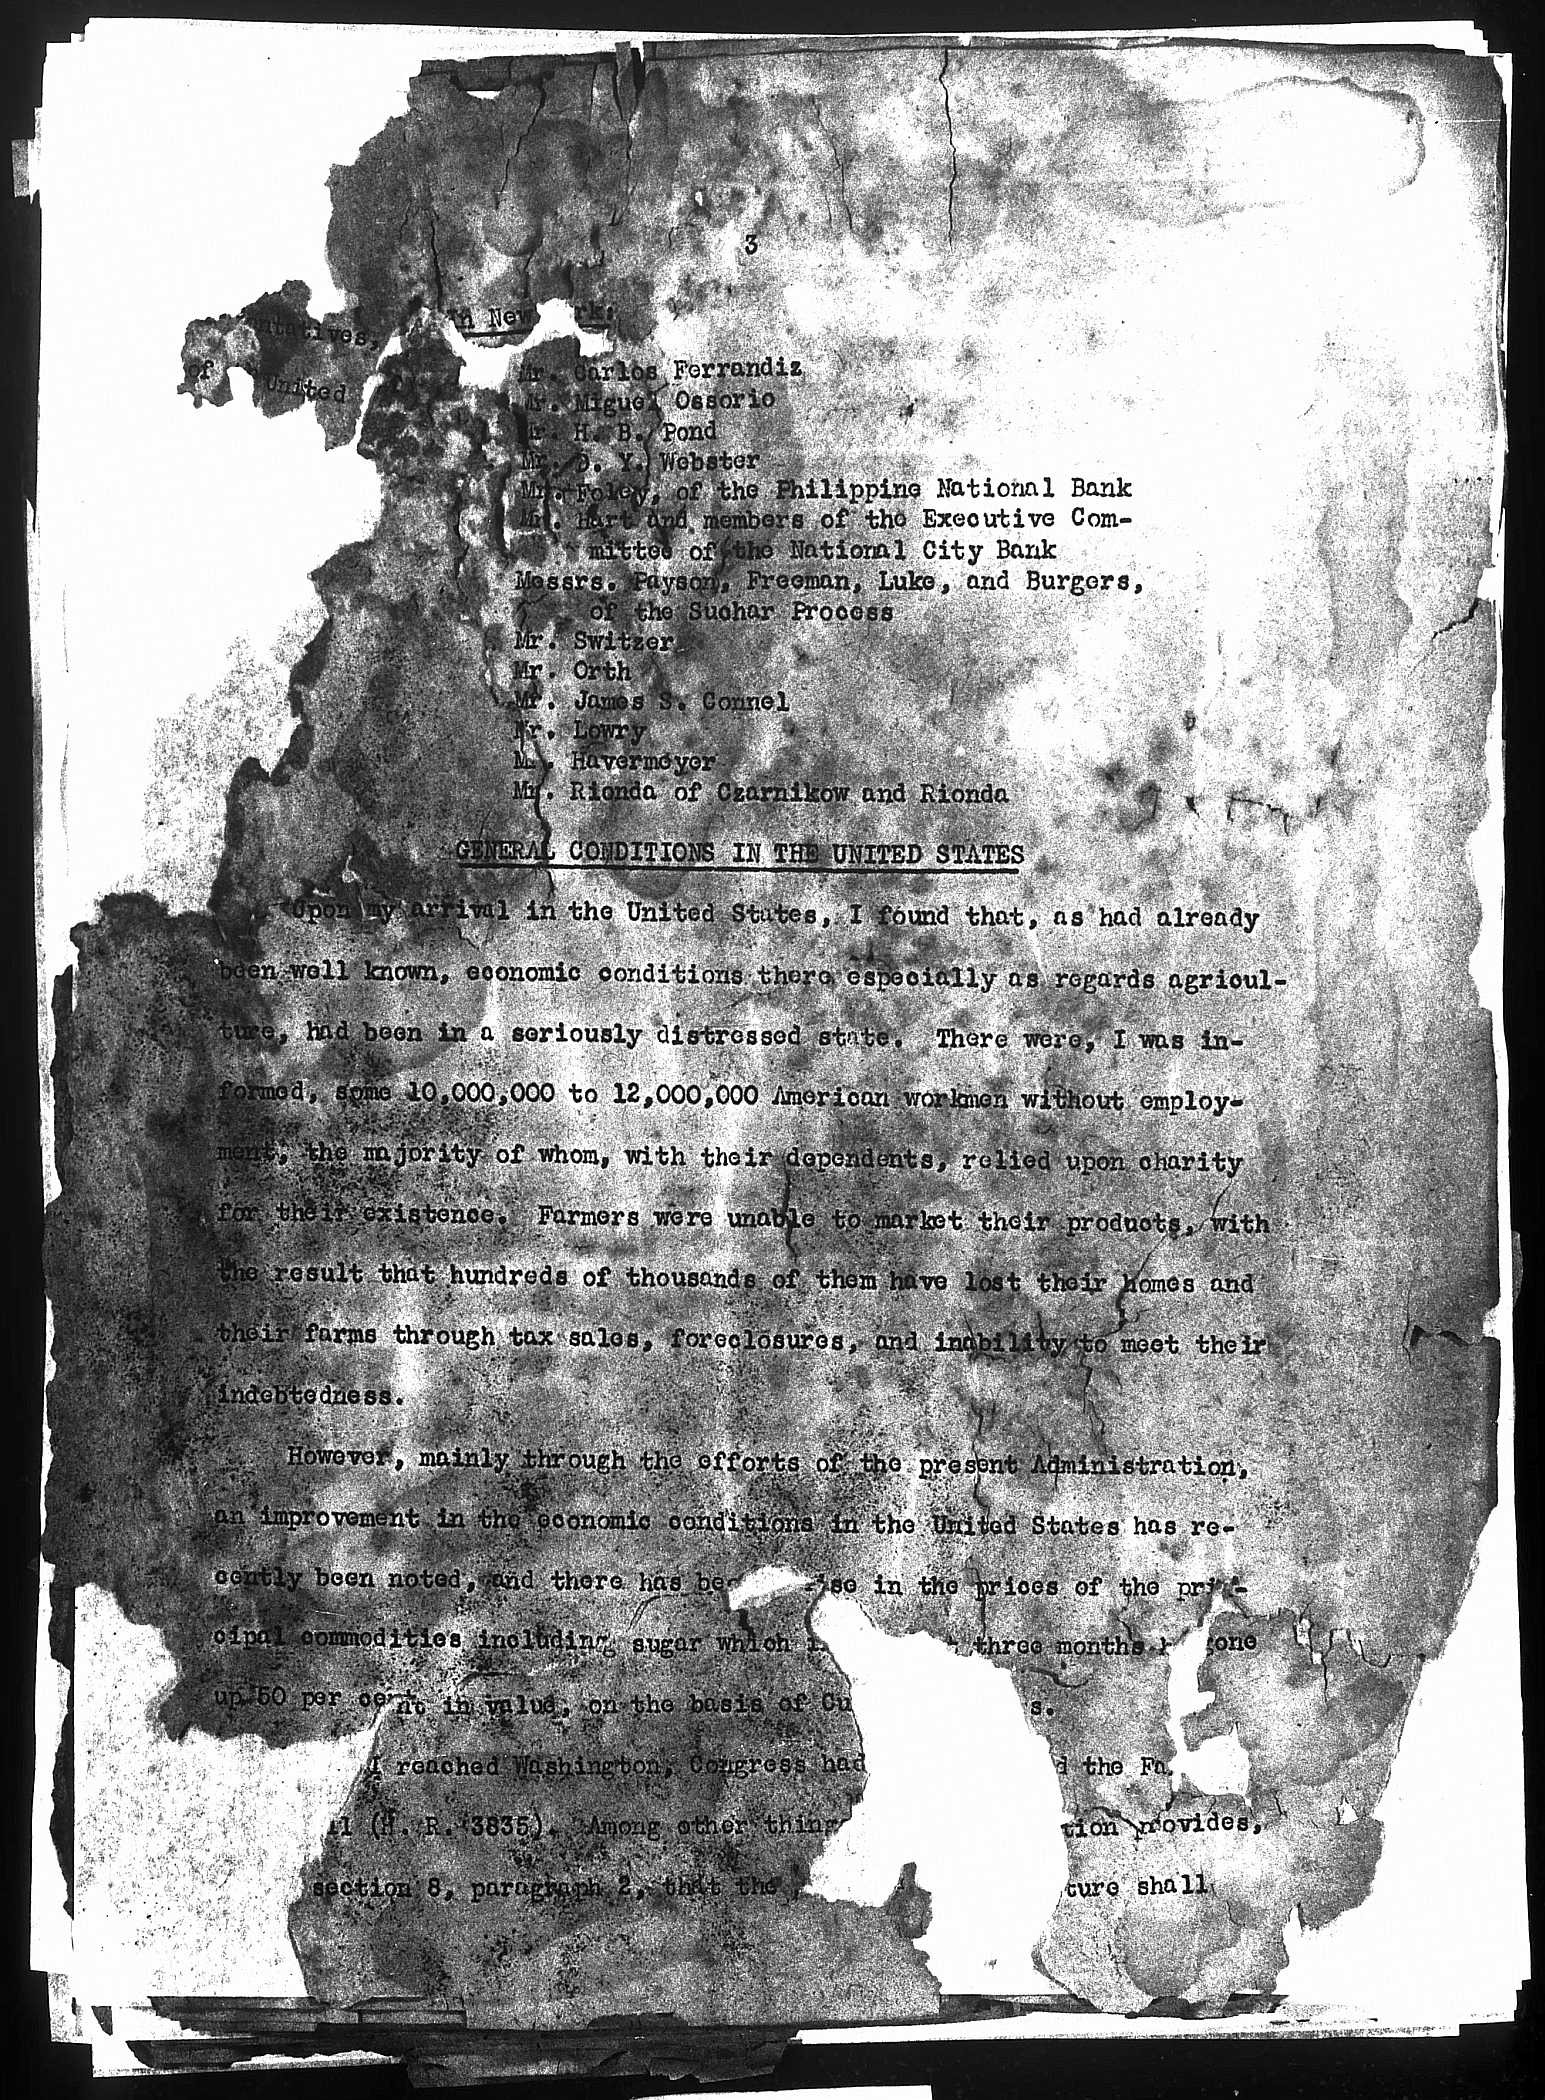 3
In New rk:
ntatives,
of United
Mr. Carlos Ferrandiz
Mr. Miguel Ossorio
Mr. H. B. Pond
Mr. D. Y. Webster
Mr. Foley, of the Philippine National Bank
Mr. Hart and members of the Executive Com-
mittee of the National City Bank
Messrs. Payson, Freeman, Luke, and Burgers,
of the Suchar Process
Mr. Switzer
Mr. Orth
Mr. James S. Connel
Mr. Lowry
M. . Havermeyer
Mr. Rionda of Czarnikow and Rionda
GENERAL CONDITIONS IN THE UNITED STATES
Upon my arrival in the United States, I found that, as had already
been well known, economic conditions there especially as regards agricul-
ture, had been in a seriously distressed state. There were, I was in-
formed, some 10,000,000 to 12,000,000 American workmen without employ-
ment, the majority of whom, with their dependents, relied upon charity
for their existence. Farmers were unable to market their products, with
the result that hundreds of thousands of them have lost their homes and
their farms through tax sales, foreclosures, and inability to meet their
indebtedness.
However, mainly through the efforts of the present Administration,
an improvement in the economic conditions in the United States has re-
cently been noted, and there has be ise in the prices of the prin-
cipal commodities including sugar which three months gone
up 50 per cent in value, on the basis of Cu s.
I reached Washington, Congress had d the Fa
ll (H. R. 3835). Among other thing tion provides,
section 8, paragraph 2, that the ture shall